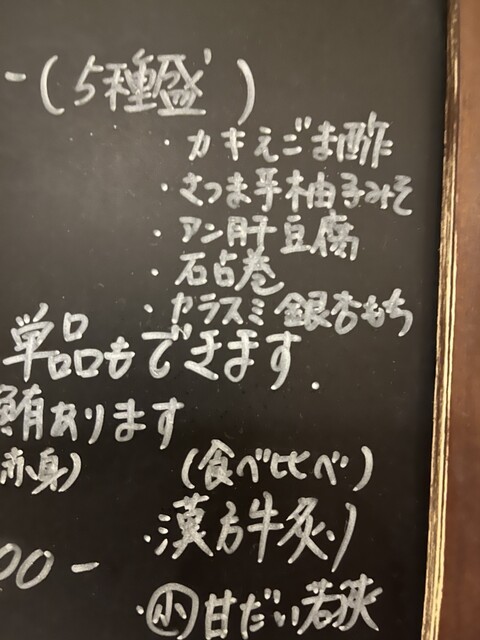 -(5種盛)
・カキえごま酢
・さつま芋柚子みそ
・アン肝豆腐
・砧巻
・カラスミ銀杏もち
単品もできます.
鮪あります
赤身)
(食べ比べ)
・漢方牛炙り
00-
・小甘だい若狭